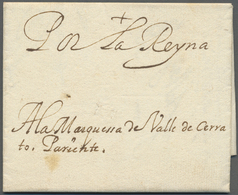 Por la Reyna
A la Marquessa de Valle de Cerra
to. Pariente.